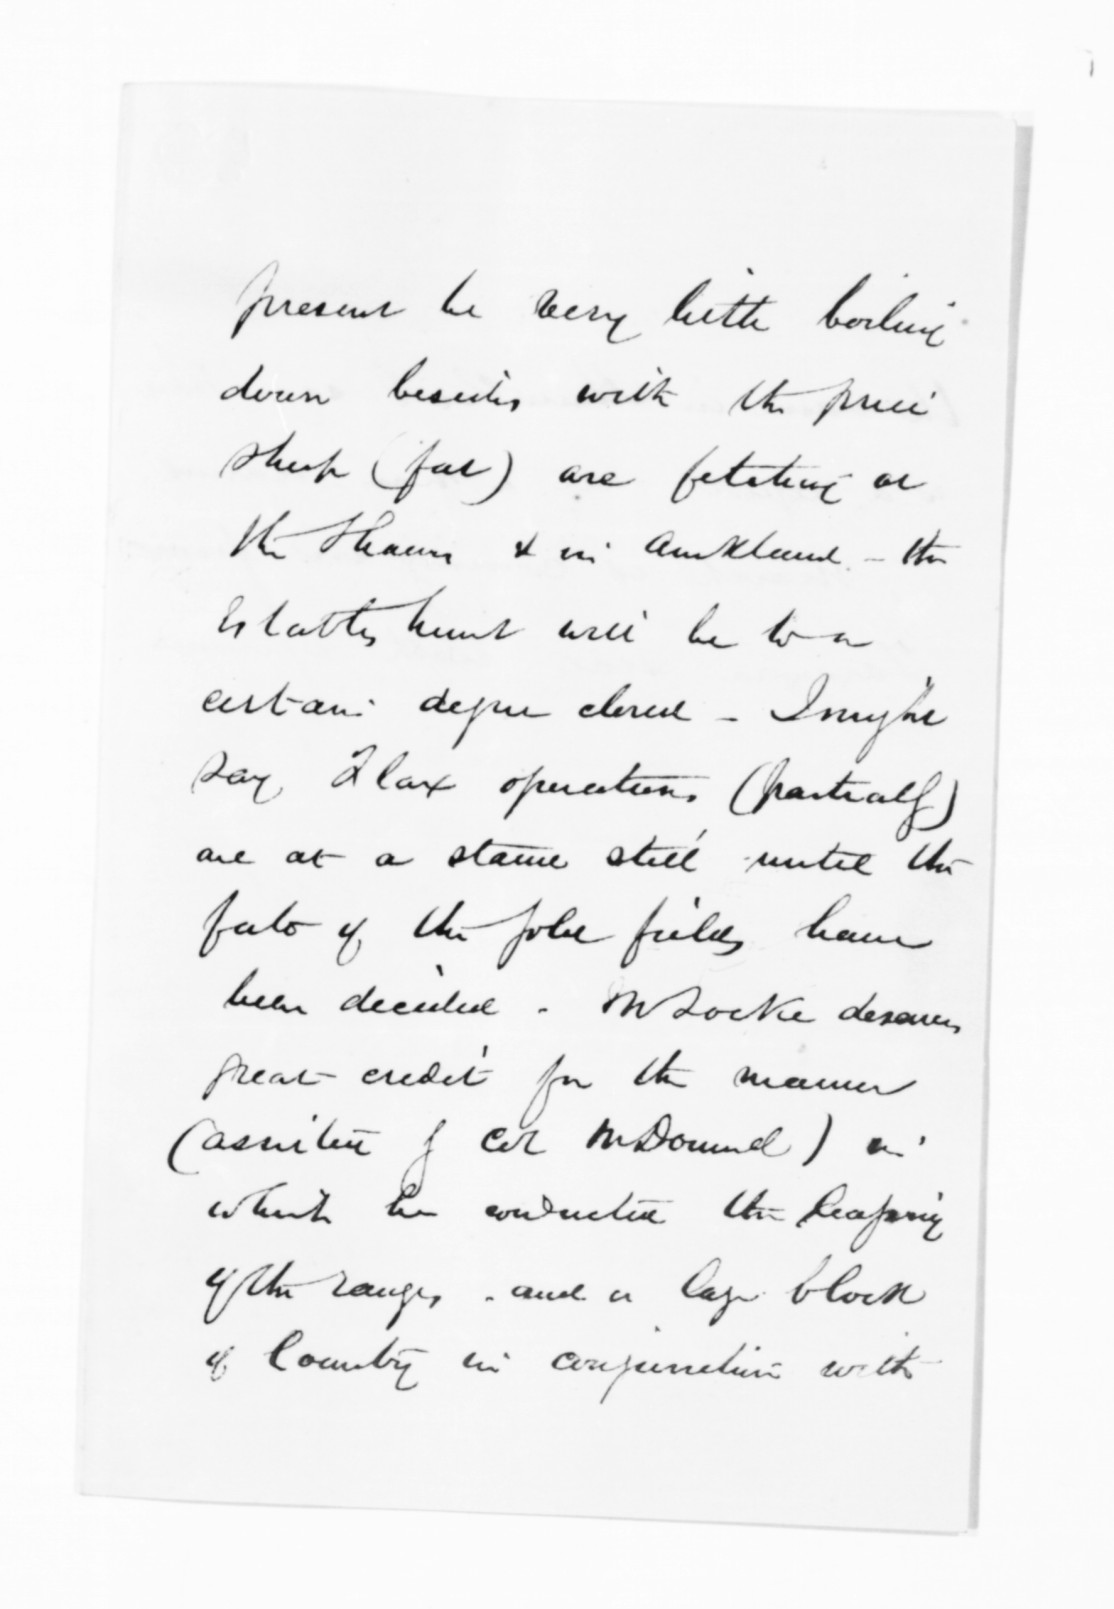 present be very little boiling
down besides with the price
sheep (fat) are fetching at
the Thames & in Auckland - the
Establishment will be to a
certain degree closed - I might
say Flax operations (partially)
are at a stand still until the
fate of the gold fields have
been decided - Mr Locke deserves
great credit for the manner
(assisted by Col McDonnell) in
which he conducted the leasing
of the ranges - and a large block
of Country in conjunction with